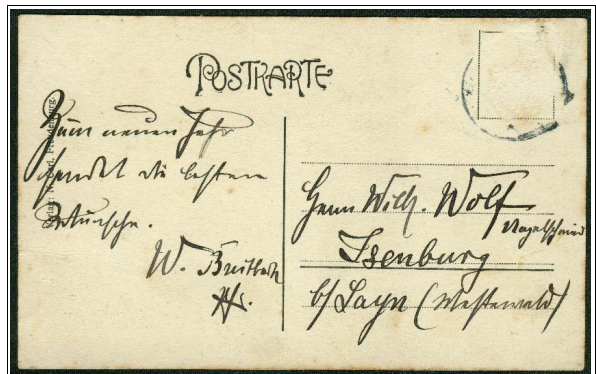 POSTKARTE
Zum neuen Jahr
sendet die besten
Wünsche.
W. Breitbach
Herrn Wilh. Wolf
Nagelschmied
Isenburg
b/ Sayn (Westerwald)